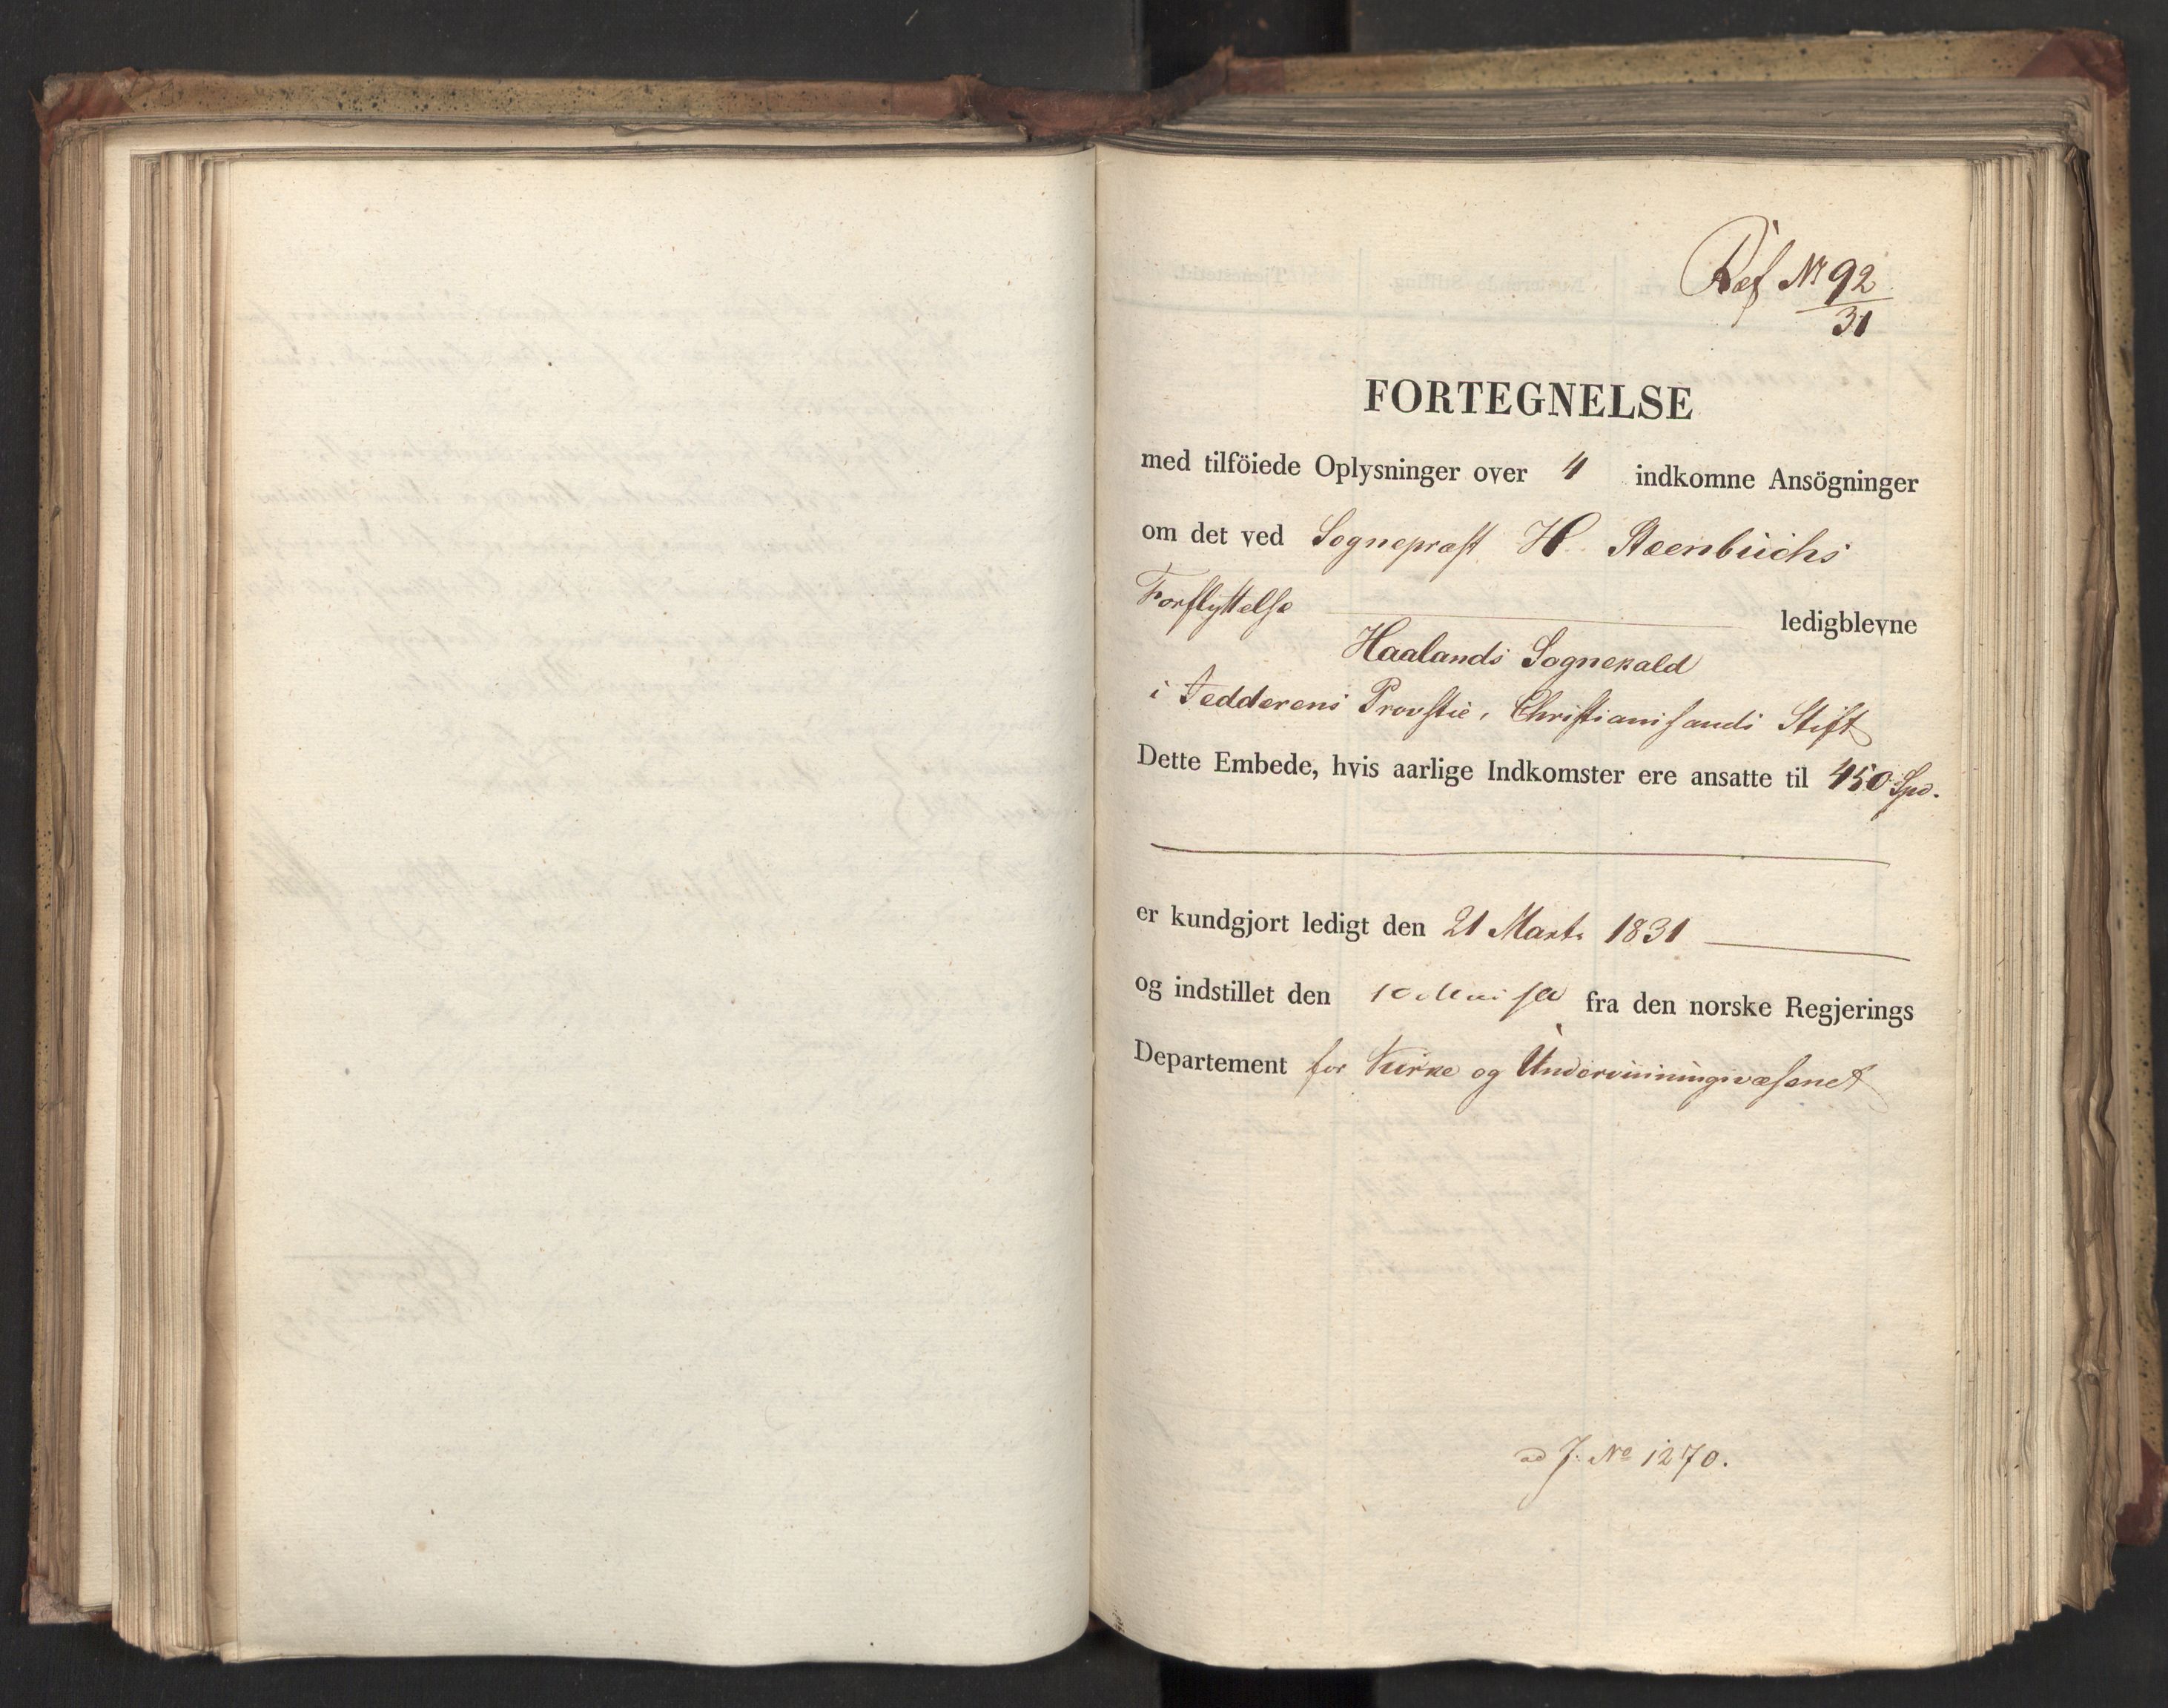 Ref № 92
31
FORTEGNELSE
med tilföiede Oplysninger over 4 indkomne Ansögninger
om det ved Sognepræst H. Steenbuchs
Forflyttelse ledigblevne
Haalands Sognekald
i Jedderens Provstie, Christiansands Stift
Dette Embede, hvis aarlige Indkomster ere ansatte til 450 Spd.
er kundgjort ledigt den 21 Marts 1831
og indstillet den 10 Mai fra den norske Regjerings
Departement for Kirke og Underviisningsvæsenet
ad J. No 1270.